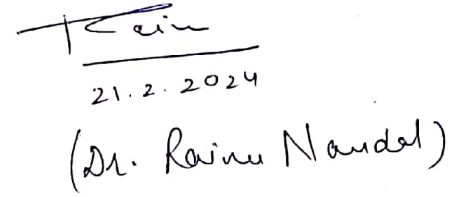 21.2.2024
(Dr. Rainu Nandal)